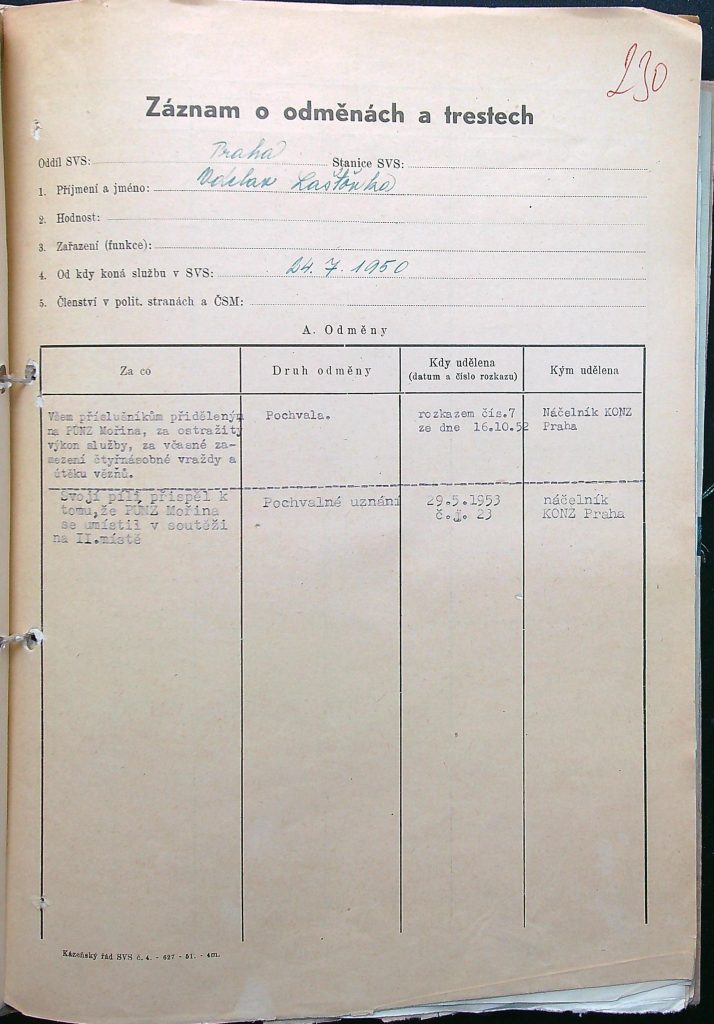 230
Záznam o odměnách a trestech
Oddíl SVS: Praha Stanice SVS:
1. Příjmení a jméno: Laštůvka
2. Hodnost:
3. Zařazení (funkce):
4. Od kdy koná službu v SVS: 24.7.1950
5. Členství v polit. stranách a ČSM:
A. Odměny
Za co
Druh odměny
Kdy udělena
(datum a číslo rozkazu)
Kým udělena
Všem příslušníkům přiděleným
na PÚNZ Mořina, za ostražitý
výkon služby, za včasné za-
mezení čtyřnásobné vraždy a
útěku vězňů.
Pochvala.
rozkazem čís.7
ze dne 16.10.52
Náčelník KONZ
Praha
Svojí pílí přispěl k
tomu,že PÚNZ Mořina
se umístil v soutěži
na II.místě
Pochvalné uznání
29.5.1953
č.j. 23
náčelník
KONZ Praha
Kázeňský řád SVS č. 4. - 627 - 51. - 4m.